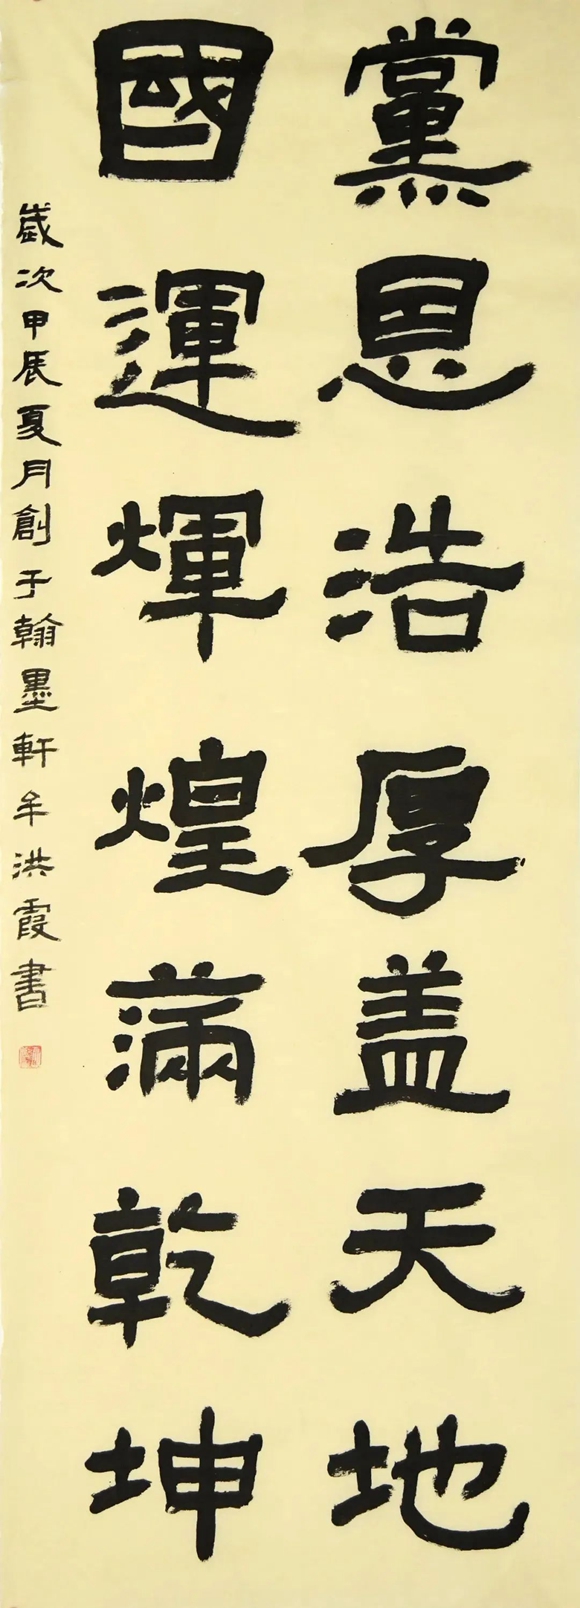 黨恩浩厚盖天地
國運煇煌滿乾坤
歲次甲辰夏月創于翰墨軒牟洪霞書